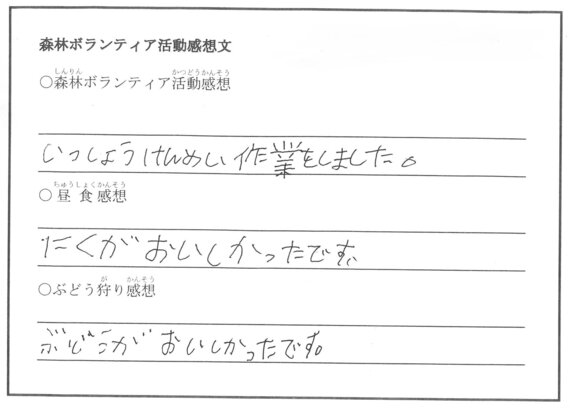 森林ボランティア活動感想文
しんりん かつどうかんそう
○森林ボランティア活動感想
いっしょうけんめい作業をしました。
ちゅうしょくかんそう
○昼食感想
にくがおいしかったです。
が かんそう
○ぶどう狩り感想
ぶどうがおいしかったです。